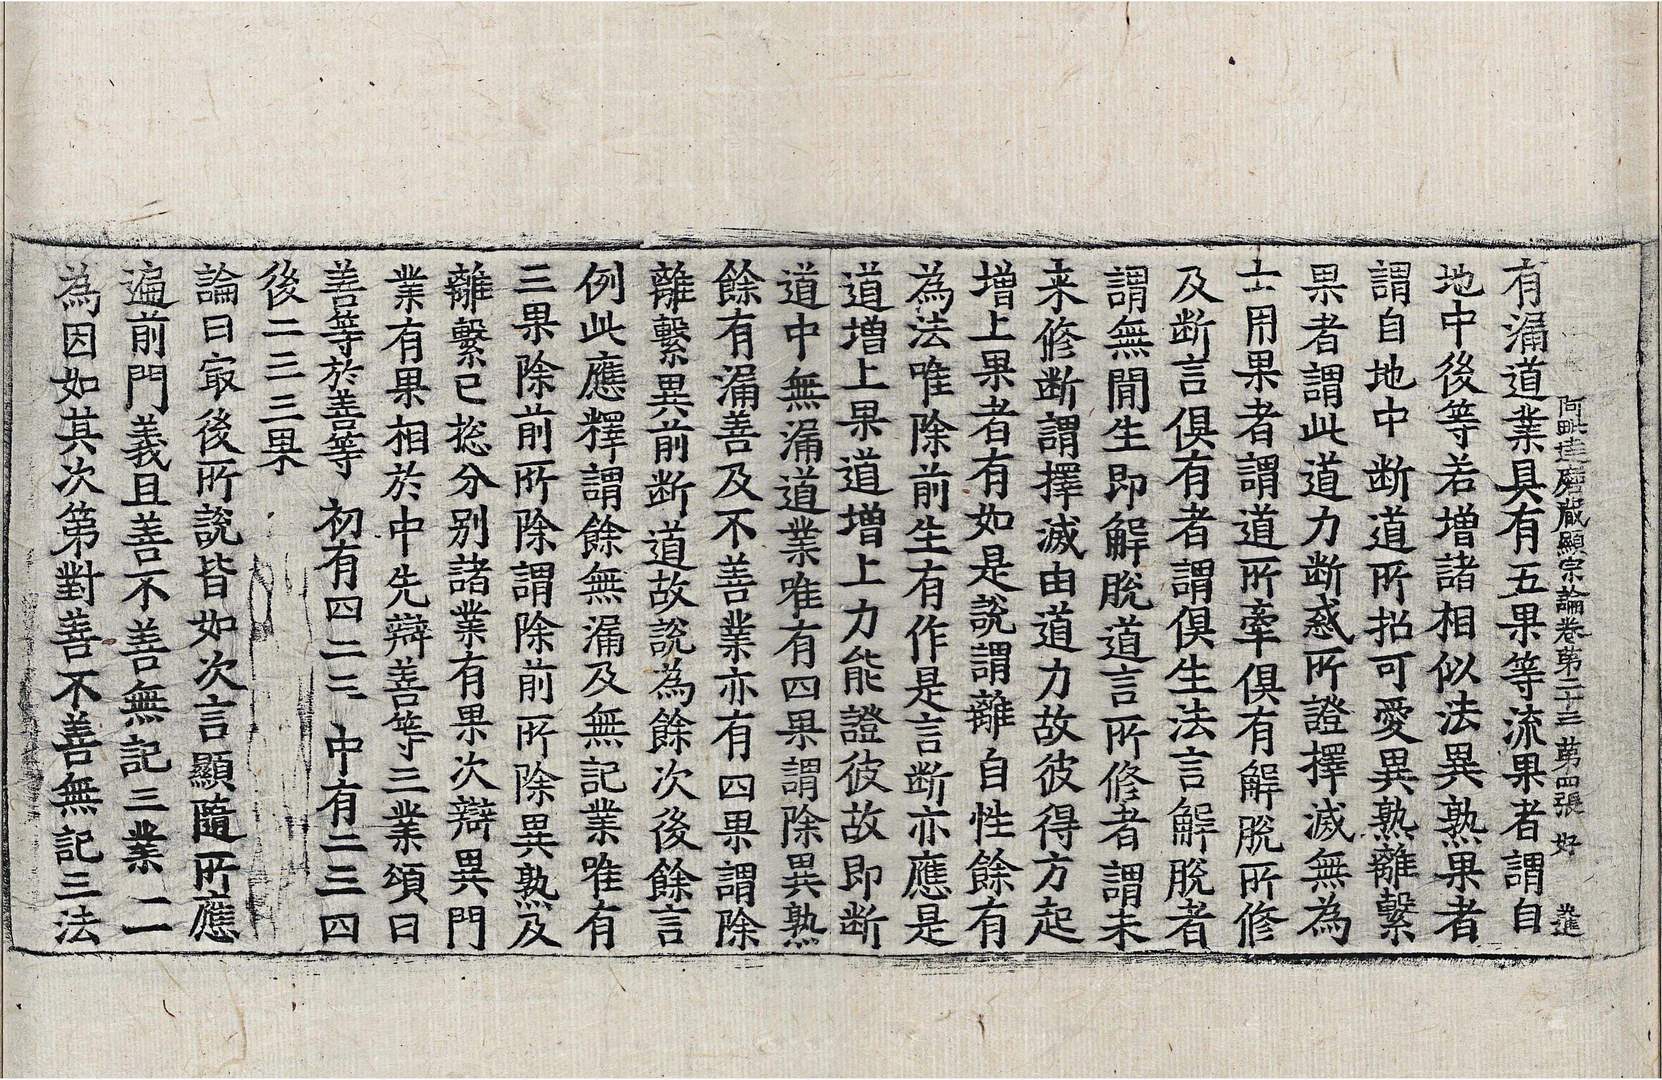 阿毗達磨藏顯宗論卷第二十三 第四張 好
有漏道業具有五果等流果者謂自
地中後等若增諸相似法異熟果者
謂自地中断道所招可愛異熟離繫
果者謂此道力断惑所證擇滅無為
士用果者謂道所牽俱有解脫所修
及断言俱有者謂俱生法言解脫者
謂無間生即解脫道言所修者謂未
来修断謂擇滅由道力故彼得方起
增上果者有如是說謂離自性餘有
為法唯除前生有作是言断亦應是
道增上果道增上力能證彼故即断
道中無漏道業唯有四果謂除異熟
餘有漏善及不善業亦有四果謂除
離繫異前断道故說為餘次後餘言
例此應釋謂餘無漏及無記業唯有
三果除前所除謂除前所除異熟及
離繫已捴分別諸業有果次辯異門
業有果相於中先辯善等三業頌曰
善等於善等 初有四二三 中有二三四
後二三三果
論曰冣後所說皆如次言顯隨所應
遍前門義且善不善無記三業一一
為因如其次第對善不善無記三法